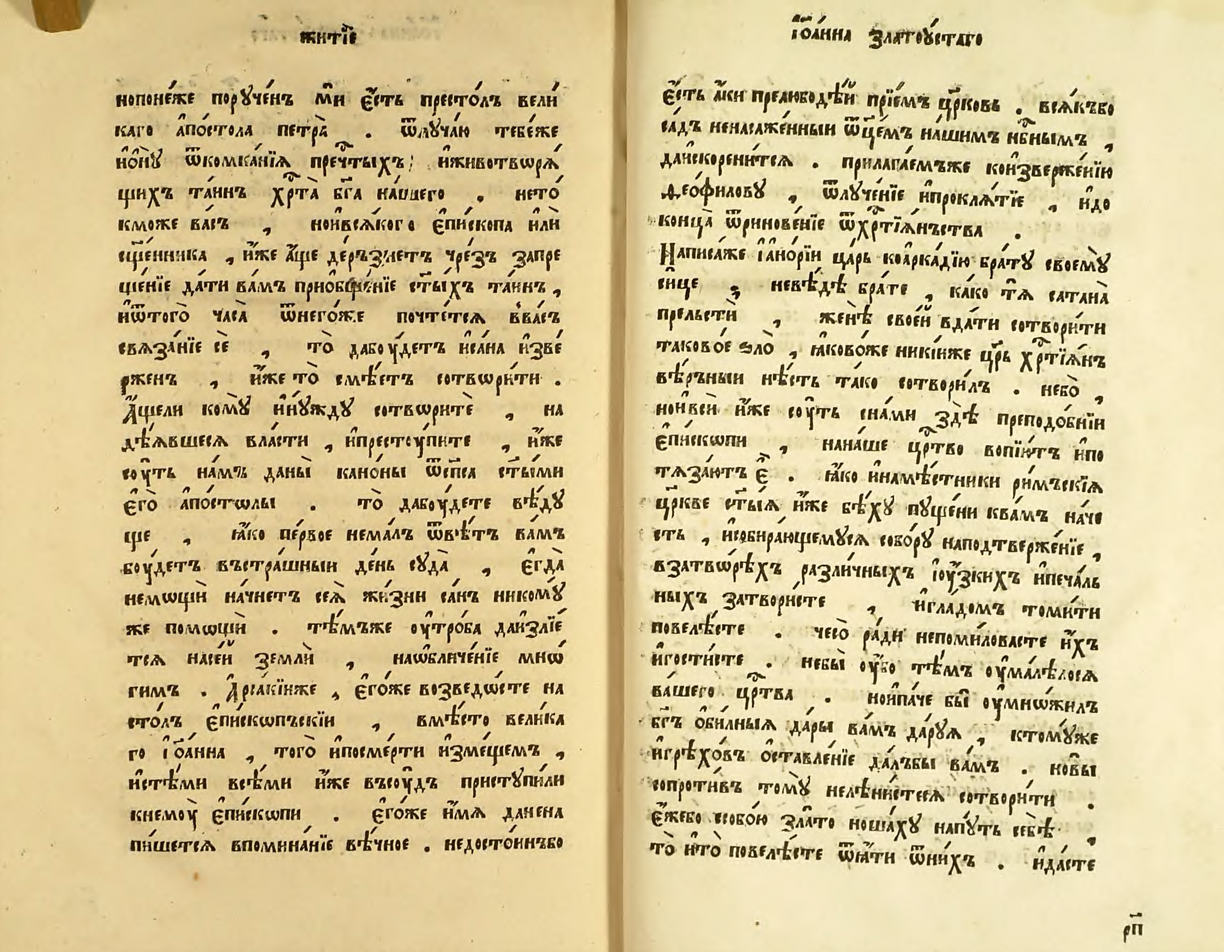 житїе
нопоне́же порꙋ́ченъ мѝ є҆́сть престо́лъ вели
каго а҆по́стола петра̀ . ѿлꙋча́ю тебе́же
и҆ѻ҆нꙋ̀ ѿкомка́нїѧ пречⷭ҇тыхъ, и҆животворѧ́
щихъ та́инъ хрⷭ҇та̀ бг҃а на́шего , нето́
кможе ва́съ , но҆ивсѧ́кого є҆пи́скопа и҆лѝ
сщ҃е́нника , и҆́же а҆́ще де́рзнетъ чре́зъ запре
ще́нїе да́ти ва́мъ прио҆бще́нїе ст҃ы́хъ та́инъ ,
и҆ѿтого̀ часа ѿнего́же почте́тсѧ в҆ва́съ
свѧза́нїе сѐ , то̀ дабꙋ́детъ и҆са́на и҆зве
рженъ , и҆́же то̀ смѣ́етъ сотвѡри́ти .
А҆́щели комꙋ̀ и҆нꙋ́ждꙋ сотвѡритѐ , на
дѣ́ѧвшесѧ вла́сти , и҆престꙋ́пите , и҆́же
сꙋ́ть на́мъ даны̀ кано́ны ѿсп҃са ст҃ы́ми
є҆го̀ а҆по́стѡлы . то̀ дабꙋ́дете вѣ́дꙋ
ще , ꙗ҆́кѡ пе́рвое нема́лъ ѿвѣ́тъ ва́мъ
бꙋ́детъ въстра́шныи де́нь сꙋда̀ , є҆гда̀
немѡщѝ начне́тъ сеѧ̀ жи́зни са́нъ никомꙋ̀
же помѡщѝ . тѣ́мъже оу҆тро́ба даи҆злїе
тсѧ насе́й землѝ , наѡ҆бличе́нїе мнѡ́
гимъ . А҆рса́кїиже , є҆го́же возведо́сте на
сто́лъ є҆пи́скѡпъскїи , вмѣ́сто вели́ка
го і҆ѡ҆а́нна , того̀ и҆посме́рти и҆зме́щемъ ,
и҆стѣ́ми всѣ́ми и҆́же въсꙋ́дъ пристꙋпи́ли
кнемꙋ̀ є҆пи́скѡпи . є҆го́же и҆́мѧ дане на
пи́шетсѧ впомина́нїе вѣ́чное . недосто́инъбо
і҆ѡ҆а́нна златоꙋ́стаго
є҆́сть а҆́ки прелюбодѣ́й прїе́мъ цр҃ковь . всѧ́къбо
са́дъ ненасажде́нныи ѿц҃е́мъ на́шимъ нбⷭ҇нымъ ,
даи҆скорени́тсѧ . прилага́емъже кои҆зверже́нїю
Ѳео́филовꙋ , ѿлꙋче́нїе и҆проклѧ́тїе , и҆до
конца̀ ѿринове́нїе ѿхрⷭ҇тїѧ́нъства .
Написа́же і҆ано́рїи ца́рь коа҆рка́дїю бра́тꙋ своемꙋ̀
си́це , невѣ́дѣ бра́те , ка́кѡ тѧ̀ сатана̀
прельстѝ , женѣ̀ свое́й вда́ти сотвори́ти
таково́е ѕло̀ , ꙗ҆ково́же никі́иже цр҃ь хрⷭ҇тїѧ́нъ
вѣ́ръныи нѣ́сть та́ко сотвори́лъ . небо̀ ,
но҆ивсѝ и҆́же сꙋ́ть сна́ми здѣ̀ преподо́бнїи
є҆пи́скѡпи , нана́ше црⷭ҇тво вопїю́тъ и҆по
тѧза́ютъ є҆̀ . ꙗ҆́кѡ и҆намѣ́стники ри́мъскїѧ
цр҃кве ст҃ы́ѧ и҆́же бѣ́хꙋ пꙋ́щени ква́мъ наче
сть , и҆собира́ющемꙋсѧ собо́рꙋ наподтверже́нїе ,
взатвѡ́рѣхъ разли́чныхъ ю҆́зкихъ и҆печа́ль
ныхъ затвори́сте , и҆гла́домъ томи́ти
повелѣ́сте . чесо̀ ра́ди непоми́ловасте и҆́хъ
и҆гости́сте . небы̀ оу҆́бо тѣ́мъ оу҆малѣ́лосѧ
ва́шего црⷭ҇тва . но҆ипа́че бы̀ оу҆мно́жилъ
бг҃ъ о҆би́лныѧ да́ры ва́мъ да́рꙋѧ , ктомꙋ́же
и҆грѣхо́въ о҆ставле́нїе да́лъбы ва́мъ . но҆вы̀
сопроти́въ томꙋ̀ нелѣни́стесѧ сотвори́ти .
є҆́жебо собо́ю зла́то ноша́хꙋ напꙋ́ть себѣ̀ ,
то̀ и҆то̀ повелѣ́сте ѿѧ́ти ѿни́хъ . и҆да́сте
рп҃